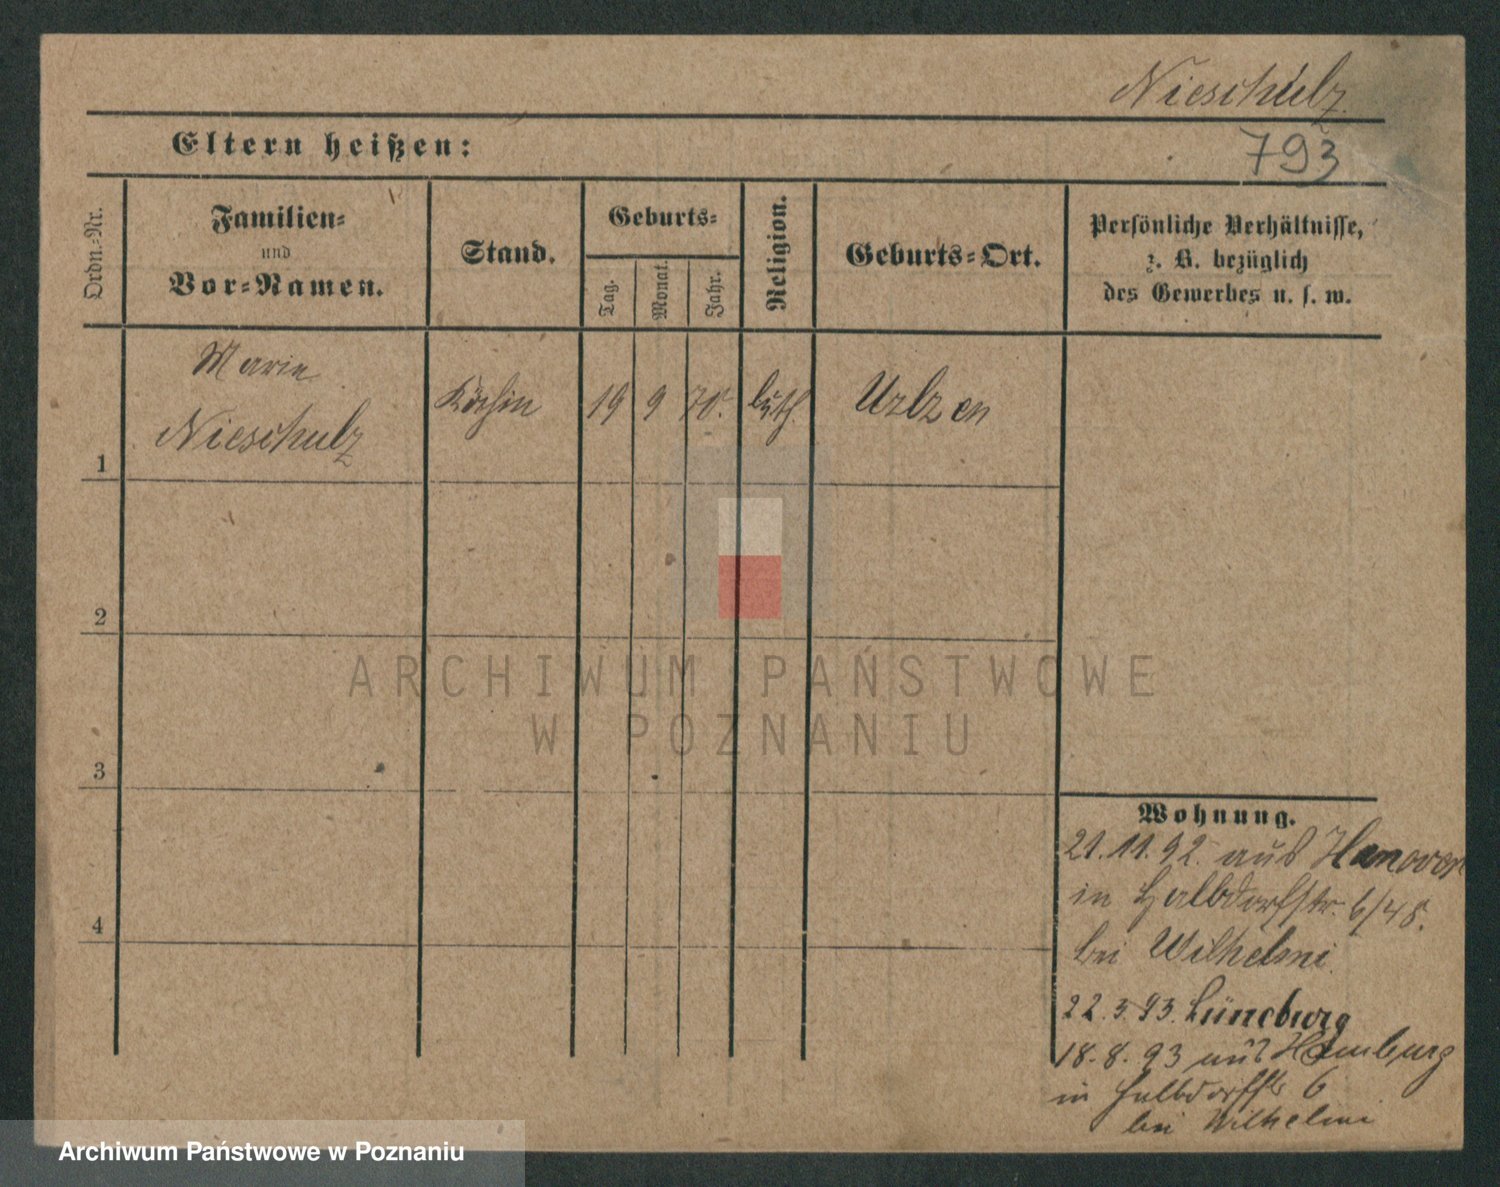 Nieschulz.
793
Eltern heißen:
Ordn.-Nr.
Familien-
und
Vor-Namen.
Stand.
Geburts-
Tag.
Monat.
Jahr.
Religion.
Geburts-Ort.
Persönliche Verhältnisse,
z. B. bezüglich
des Gewerbes u. s. w.
1
Marie
Nieschulz
Köchin
19
9
70.
luth.
Uelzen
2
3
4
ARCHIWUM PAŃSTWOWE
W POZNANIU
Wohnung.
21.11.92. aus Hanover
in Halbdorfstr. 6/48.
bei Wilhelmi.
22.3.93. Lüneburg
18.8.93 aus Hamburg
in Halbdorfstr 6
bei Wilhelmi
Archiwum Państwowe w Poznaniu